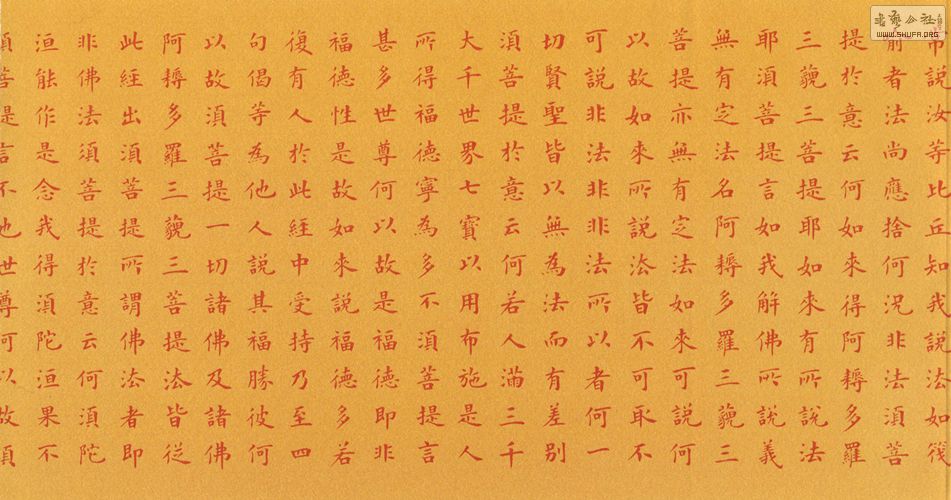 說汝等比丘知我說法如筏
者法尚應捨何況非法須菩
提於意云何如來得阿耨多羅
三藐三菩提耶如來有所說法
耶須菩提言如我解佛所說義
無有定法名阿耨多羅三藐三
菩提亦無有定法如來可說何
以故如來所說法皆不可取不
可說非法非非法所以者何一
切賢聖皆以無為法而有差別
須菩提於意云何若人滿三千
大千世界七寶以用布施是人
所得福德寧為多不須菩提言
甚多世尊何以故是福德即非
福德性是故如來說福德多若
復有人於此經中受持乃至四
句偈等為他人說其福勝彼何
以故須菩提一切諸佛及諸佛
阿耨多羅三藐三菩提法皆從
此經出須菩提所謂佛法者即
非佛法須菩提於意云何須陀
洹能作是念我得須陀洹果不
須菩提言不也世尊何以故須
WWW.SHUFA.ORG